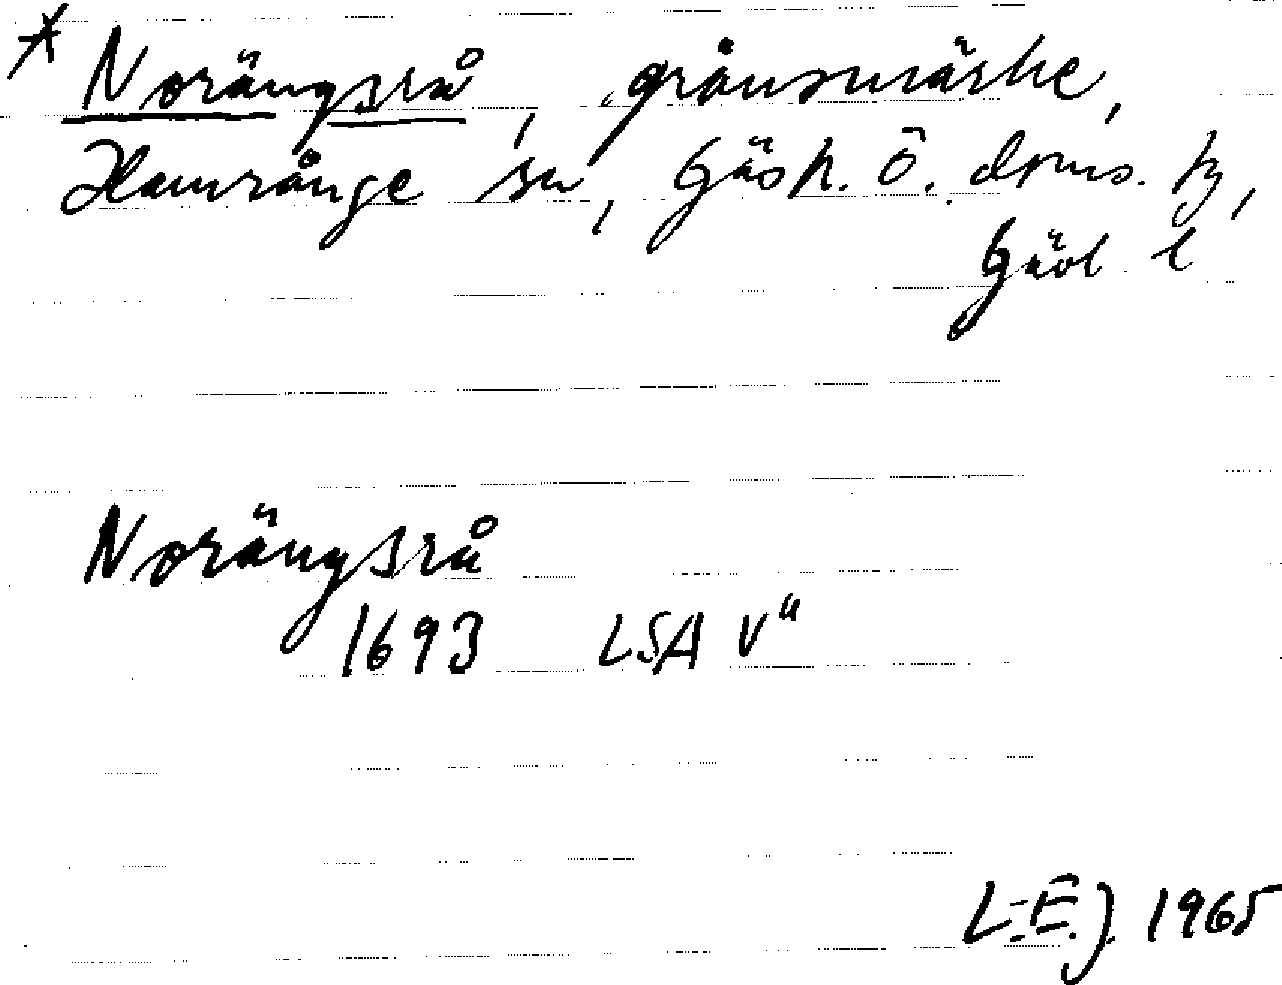 * Norängsrå, gränsmärke,
Hamrånge sn, Gästr. Ö. doms. tg,
Gävl l
Norängsrå
1693 LSA V"
L.E.J. 1965